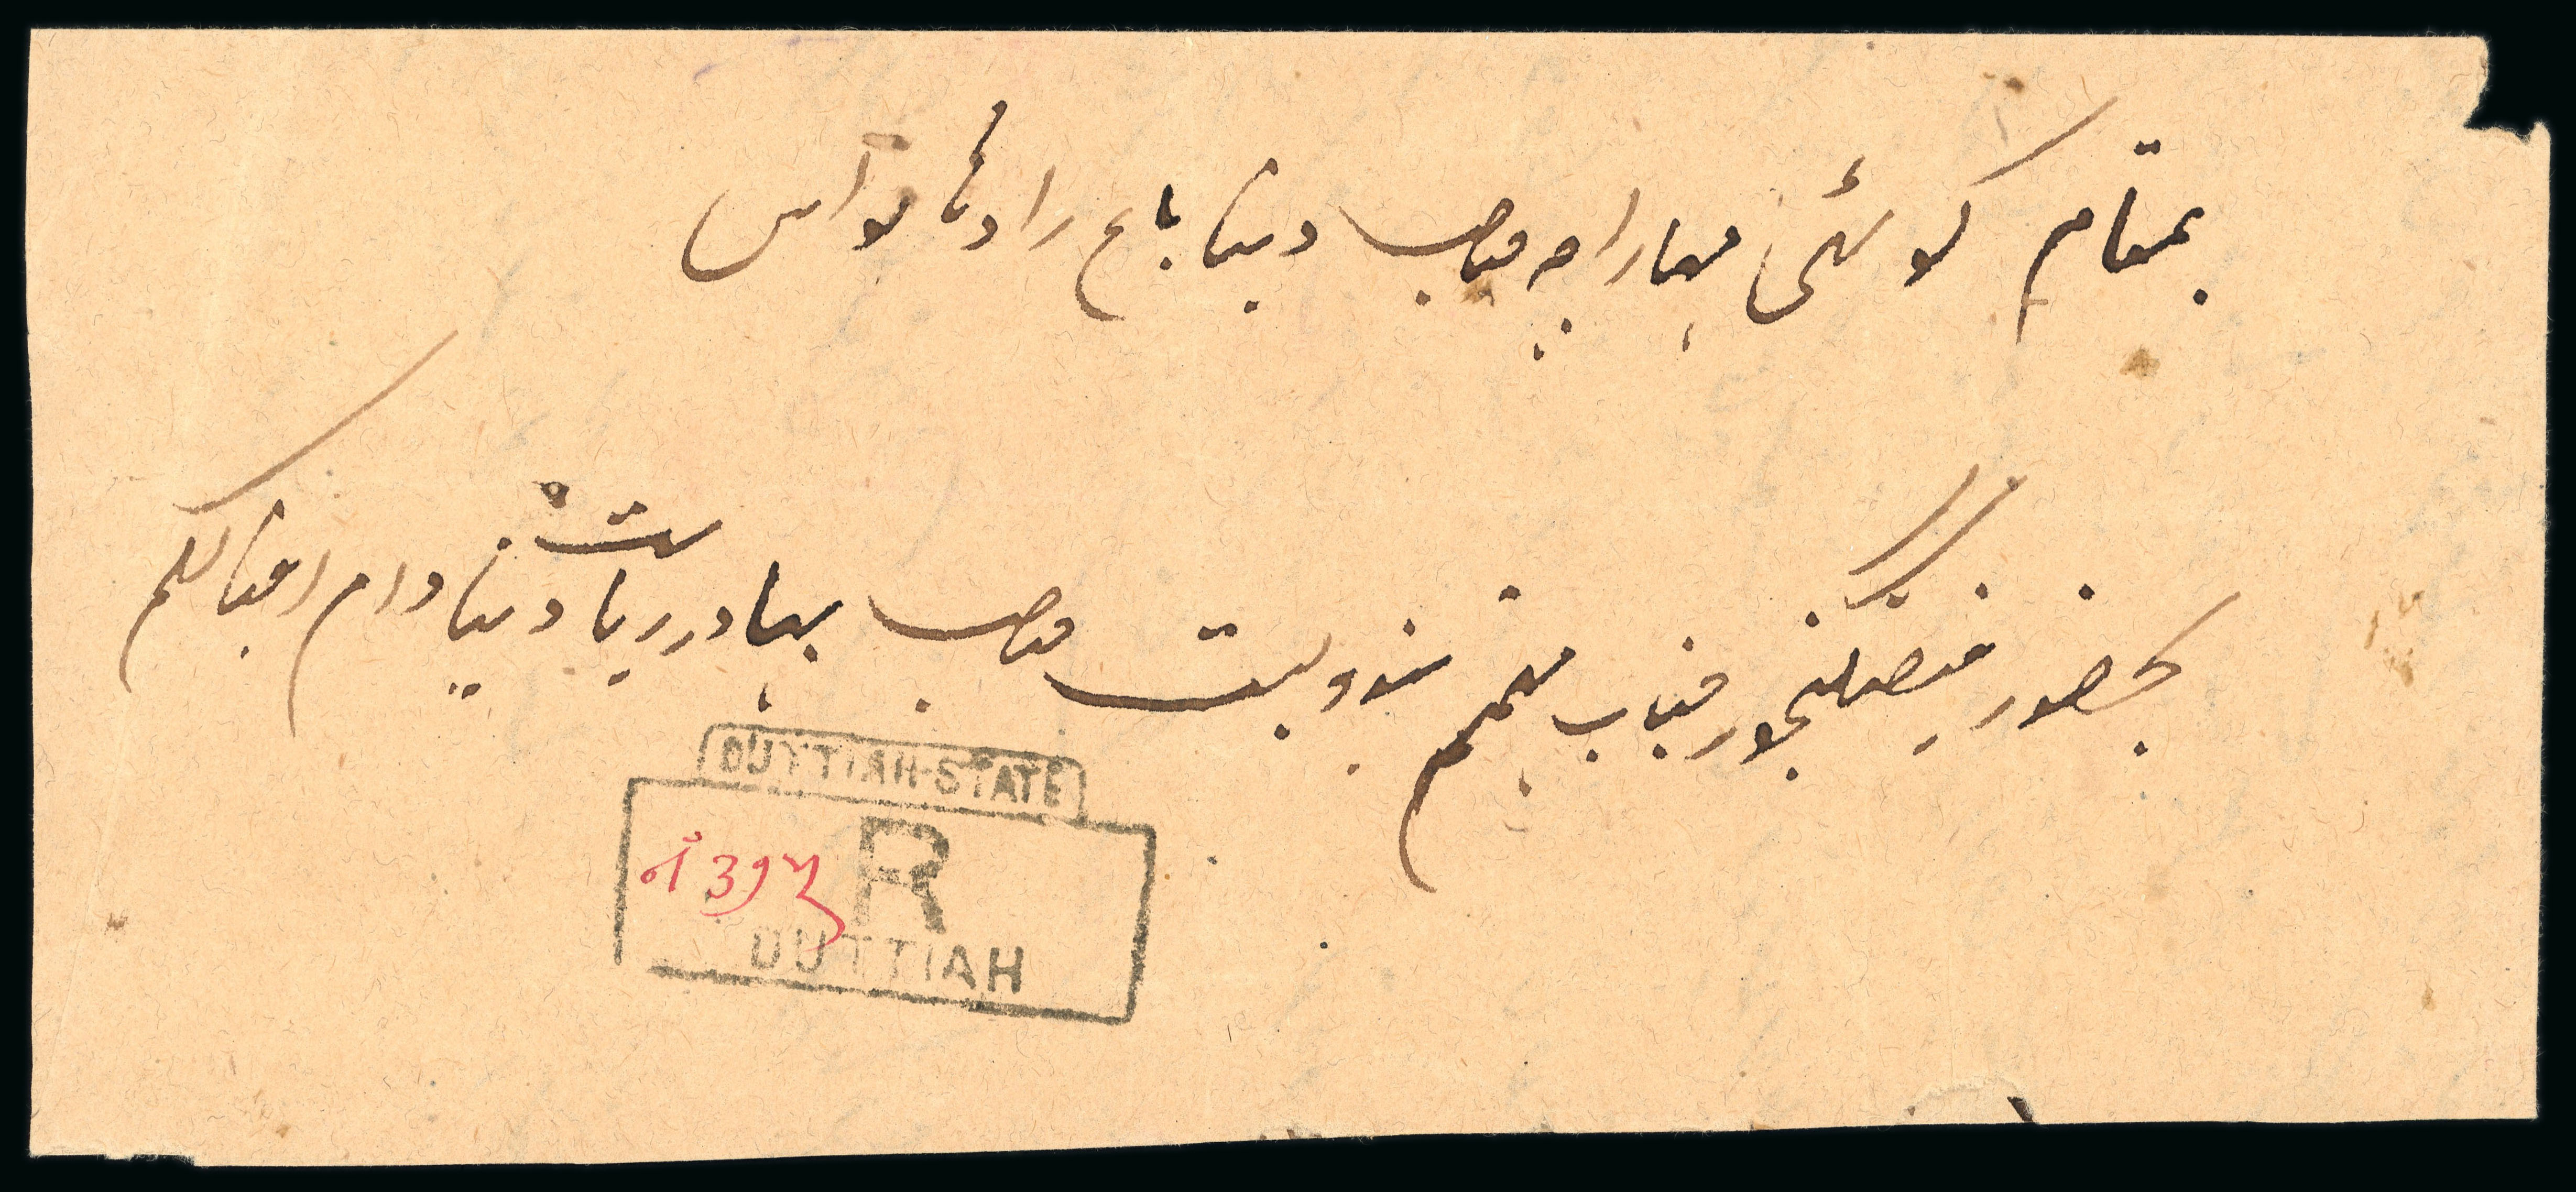 بمقام کوٹھی مہاراجہ صاحب دتیا باغ رادھا نواس
بحضور فیضگنجور جناب مہتمم بندوبست صاحب بہادر ریاست دتیا دام اقبالکم
DUTTIAH-STATE
R
DUTTIAH